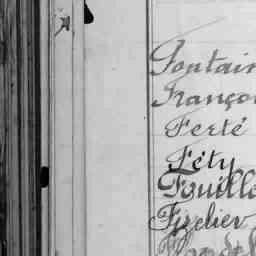 Fontain
Françoi
Ferté
Féty
Fouillo
Fuzelier